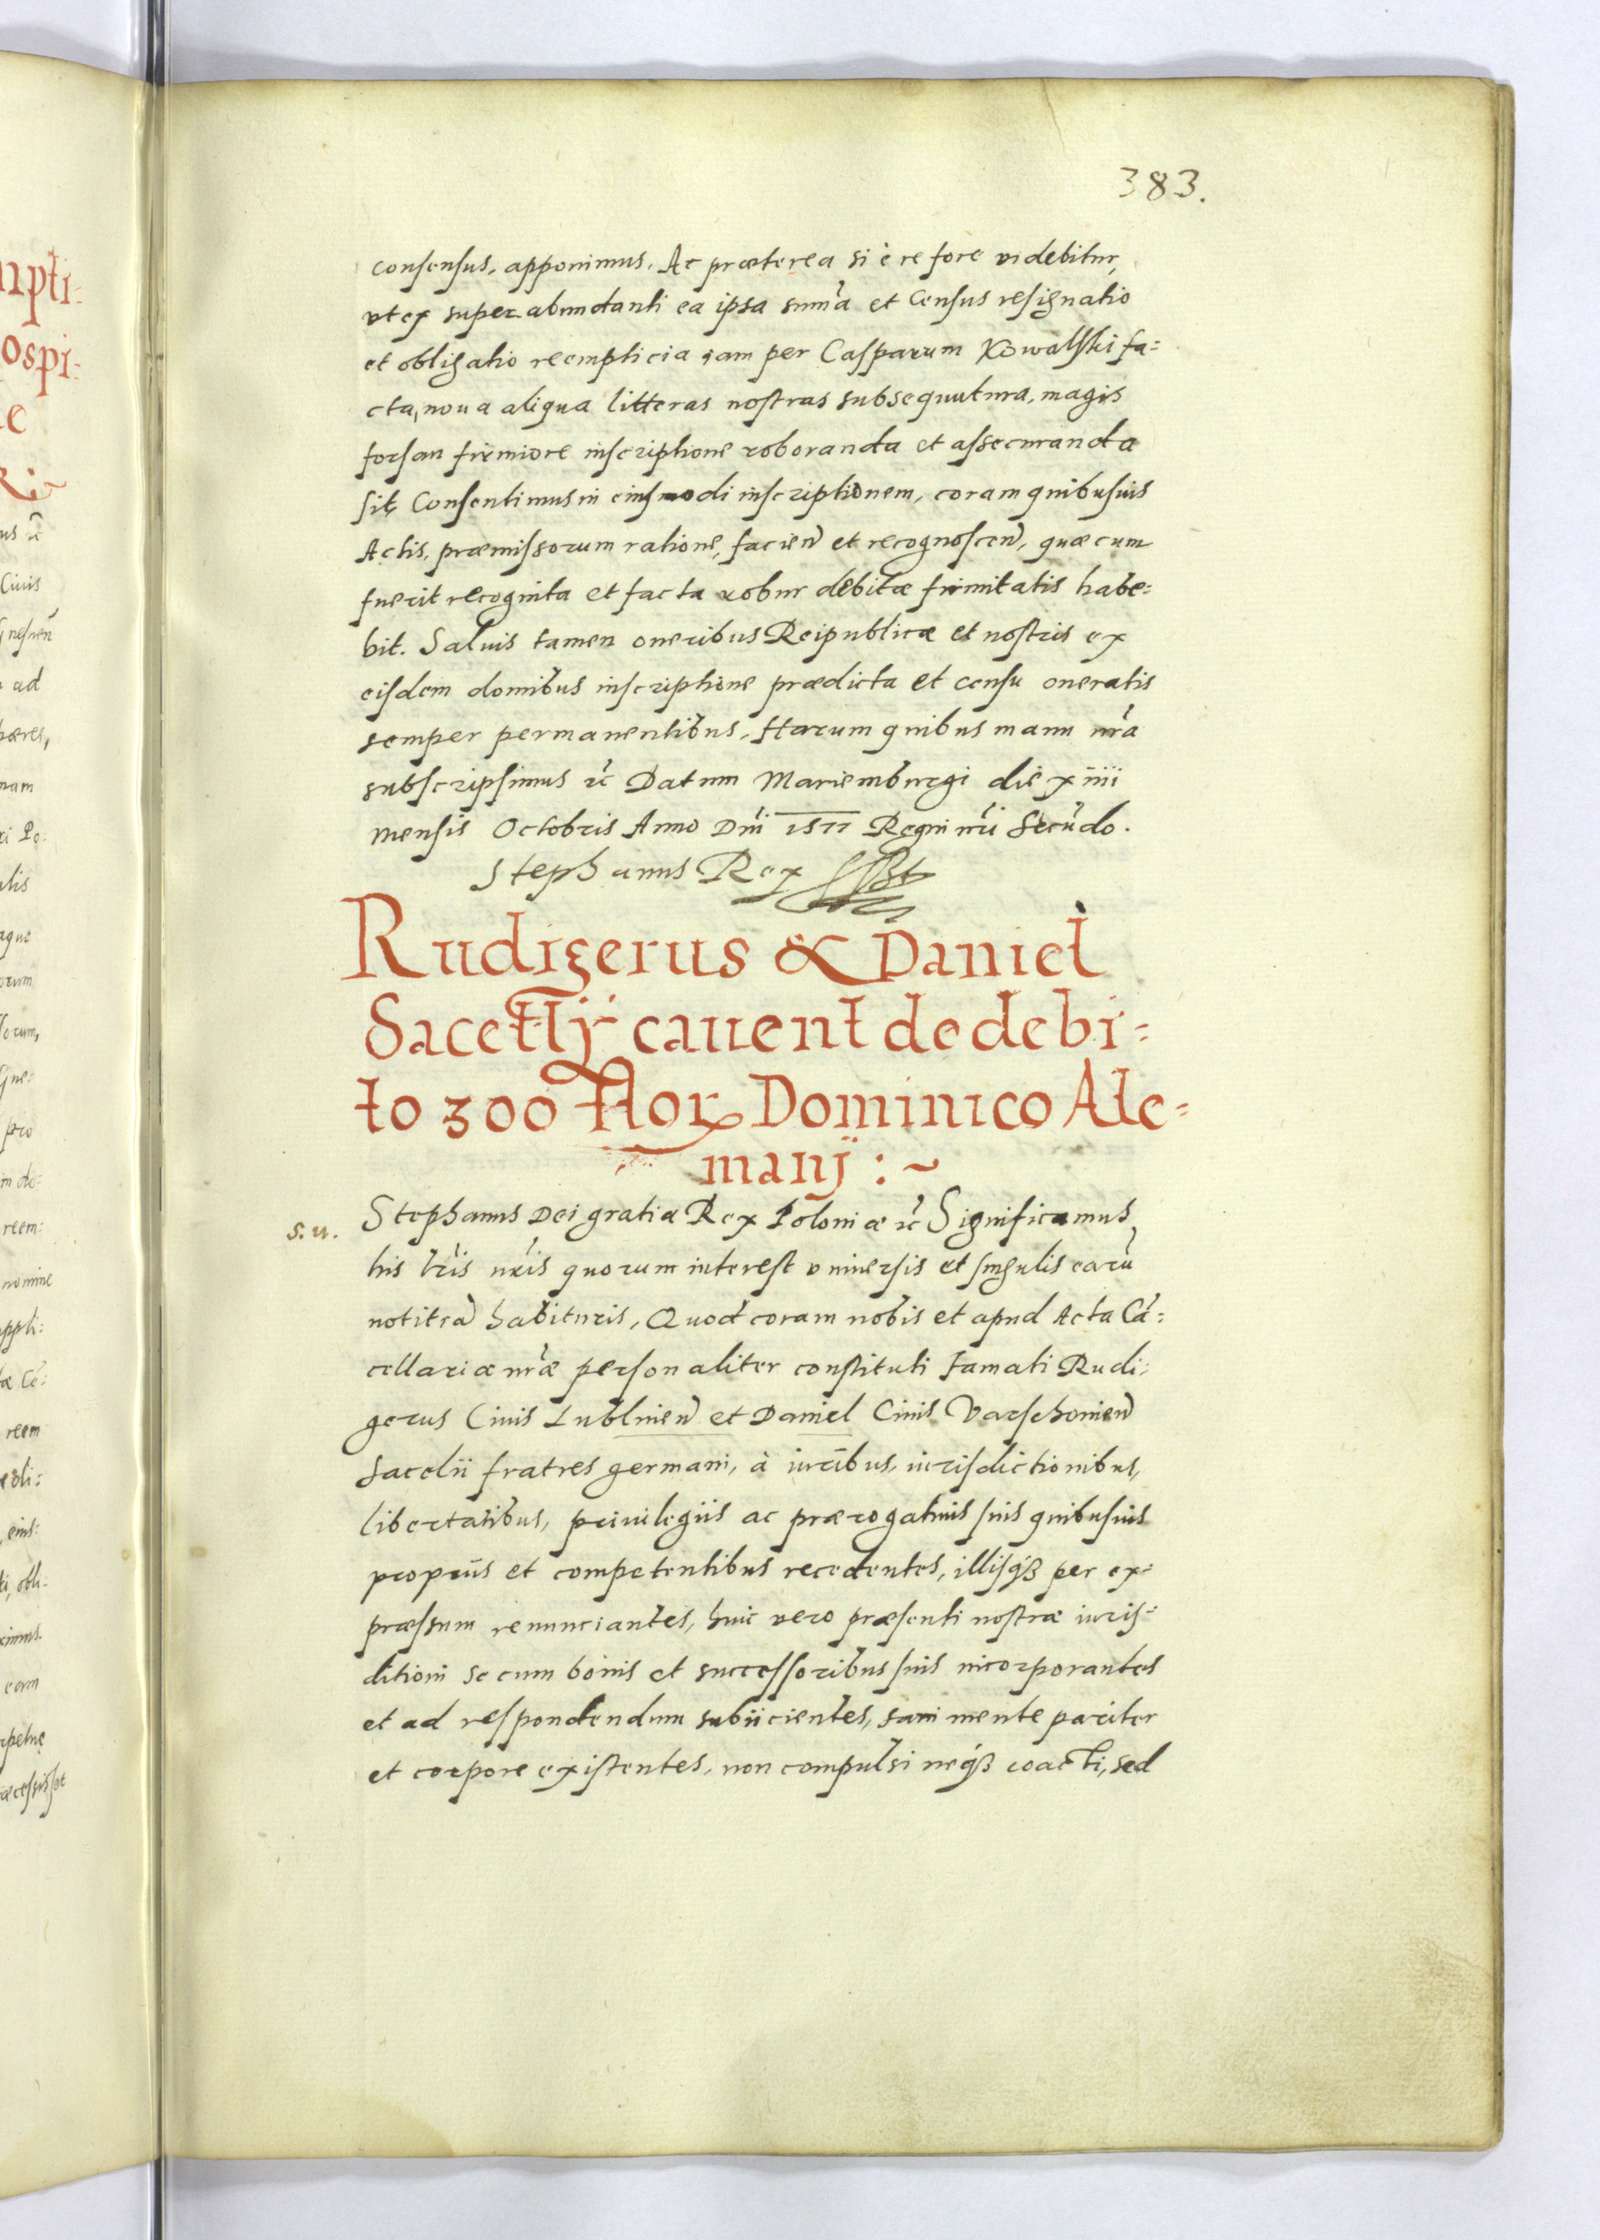 383.
consensus, apponimus. Ac præterea si è re fore videbitur,
vt ex super abundanti ea ipsa sum̃a et Census resignatio
et obligatio reempticia iam per Casparum Kowalski fa=
cta, noua aliqua litteras nostras subsequutura, magis
forsan firmiore inscriptione roboranda et assecuranda
sit, Consentimus in eiusmodi inscriptionem, coram quibusuis
Actis, præmissorum ratione, facien̄ et recognoscen̄, quæ cum
fuerit recognita et facta robur debitæ firmitatis habe=
bit. Saluis tamen oneribus Reipublicæ et nostris ex
eisdem domibus inscriptione prædicta et censu oneratis
semper permanentibus. Harum quibus manu nr̃a
subscripsimus ꝛc̃ Datum Mariemburgi die xiiii
mensis Octobris Anno Dn̄i 1577 Regni nr̃i Secũdo.
Stephanus Rex
Rudigerus & Daniel
Sacellij cauent de debi=
to 300 flor Dominico Ale=
manj : ~
s. u.
Stephanus Dei gratia Rex Poloniæ ꝛc̃ Significamus
his lr̃is nr̃is quorum interest vniuersis et singulis earũ
notitiã habituris, Quod coram nobis et apud Acta Cã=
cellariæ nr̃æ personaliter constituti Famati Rudi=
gerus Ciuis Lublinien̄ et Daniel Ciuis Varschouien̄
Sacelii fratres germani, à iuribus, iurisdictionibus,
libertatibus, priuilegiis ac prærogatiuis suis quibusuis
propriis et competentibus recedentes, illisq́ꝫ per ex=
præssum renunciantes, huic vero præsenti nostræ iuris=
ditioni se cum bonis et successoribus suis incorporantes
et ad respondendum subiicientes, sani mente pariter
et corpore existentes, non compulsi neq́ꝫ coacti, sed